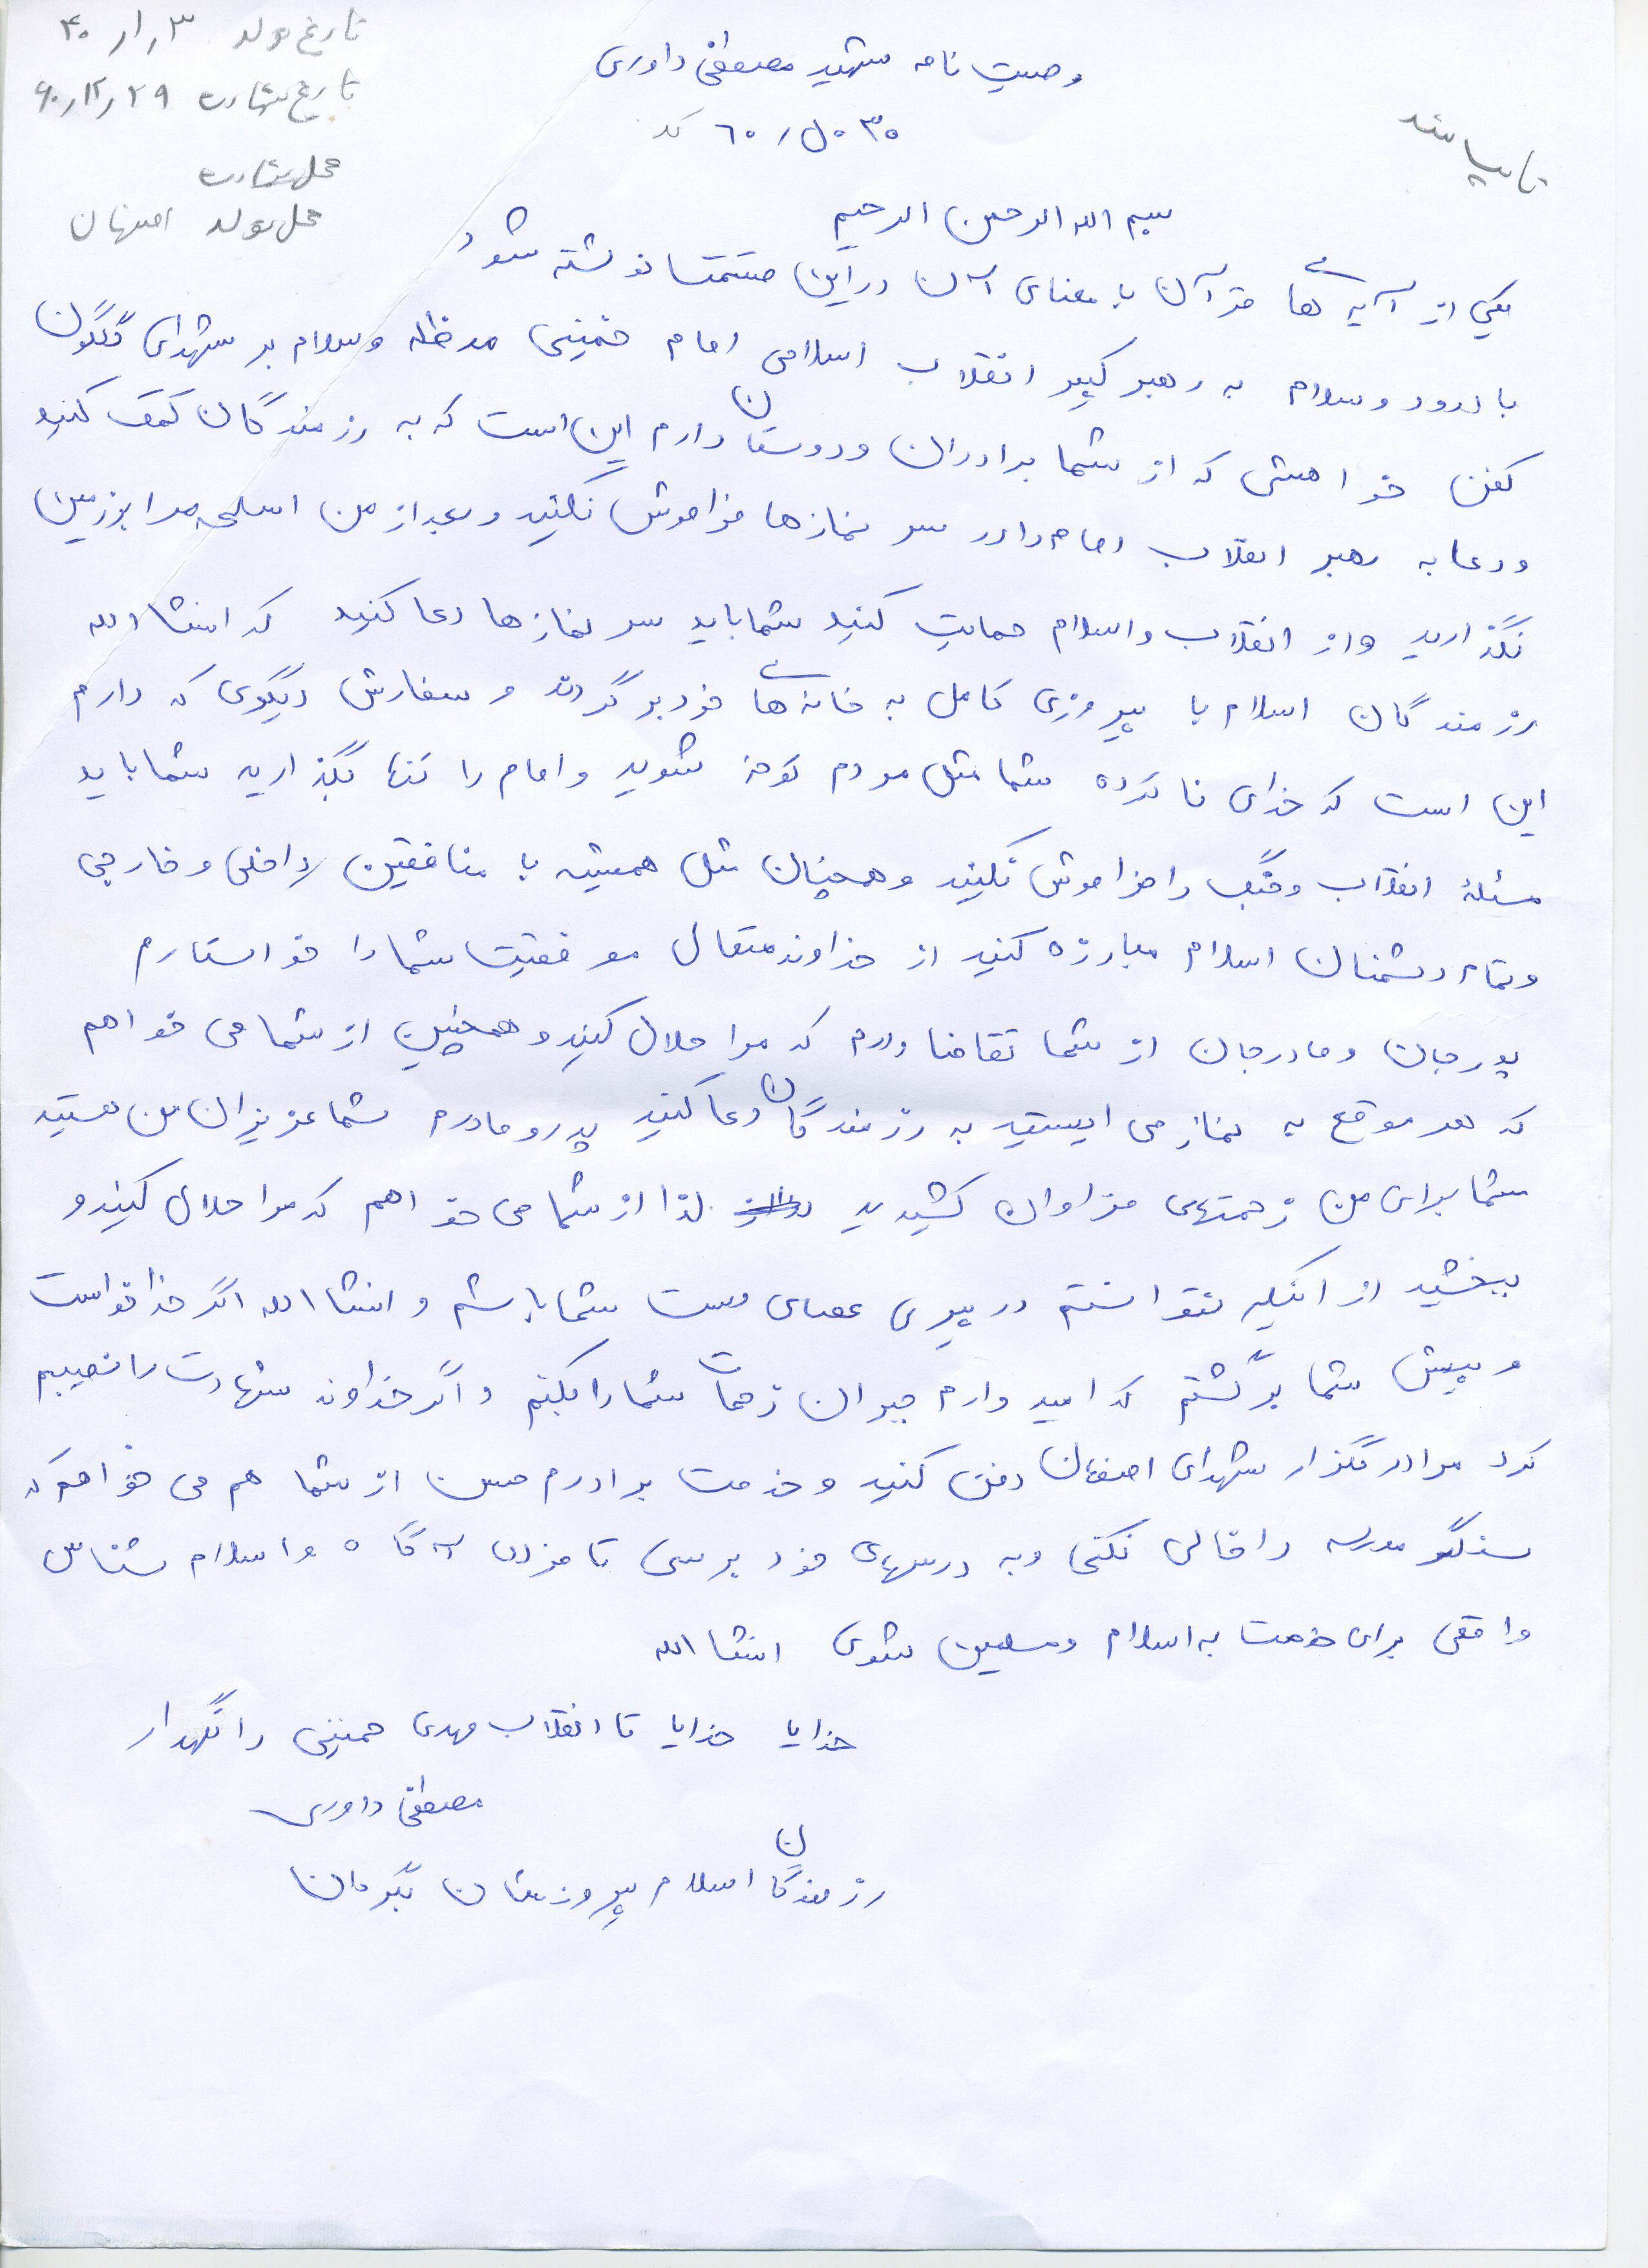 تاریخ تولد ۳ر۱ر۴۰
وصیت نامه شهید مصطفی داوری
تاریخ شهادت ۲۹ر۱۲ر۶۰
کد
تایپ شد
محل شهادت
محل تولد اصفهان
بسم الله الرحمن الرحیم
یکی از آیه های قرآن با معنای آن در این قسمت نوشته شود
با درود و سلام به رهبر کبیر انقلاب اسلامی امام خمینی مدظله و سلام بر شهدای گلگون
کفن خواهشی که از شما برادران و دوستان دارم این است که به رزمندگان کمک کنید
و دعا به رهبر انقلاب امام را در سر نمازها فراموش نکنید و بعد از من اسلحه مرا بزمین
نگذارید و از انقلاب و اسلام حمایت کنید شما باید سر نمازها دعا کنید که انشاالله
رزمندگان اسلام با پیروزی کامل به خانه های خود برگردند و سفارش دیگری که دارم
این است که خدای ناکرده شما مثل مردم کوفه نشوید و امام را تنها نگذارید شما باید
مسئلهٔ انقلاب و جنگ را فراموش نکنید و همچنان مثل همیشه با منافقین داخلی و خارجی
و تمام دشمنان اسلام مبارزه کنید از خداوند متعال موفقیت شما را خواستارم
پدرجان و مادرجان از شما تقاضا دارم که مرا حلال کنید و همچنین از شما می خواهم
که هر موقع به نماز می ایستید به رزمندگان دعا کنید پدر و مادرم شما عزیزان من هستید
شما برای من زحمتهای فراوان کشیدید لذا از شما می خواهم که مرا حلال کنید و
ببخشید از اینکه نتوانستم در پیری عصای دست شما باشم و انشاالله اگر خدا خواست
و پیش شما برگشتم که امید وارم جبران زحمات شما را بکنم و اگر خداوند شهادت را نصیبم
کرد مرا در گلزار شهدای اصفهان دفن کنید و خدمت برادرم حسن از شما هم می خواهم که
سنگر مدرسه را خالی نکنی و به درسهای خود برسی تا فردی آگاه و اسلام شناس
واقعی برای خدمت به اسلام و مسلمین شوی انشاالله
خدایا خدایا تا انقلاب مهدی خمینی را نگهدار
مصطفی داوری
رزمندگان اسلام پیروزشان بگردان